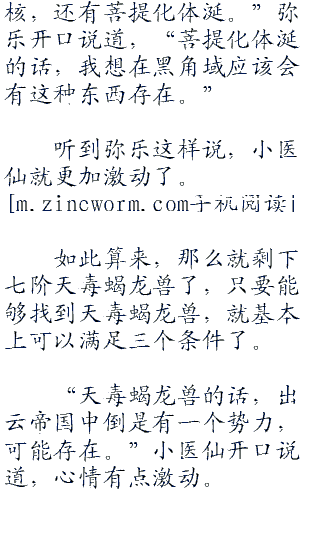 核，还有菩提化体涎。”弥
乐开口说道，“菩提化体涎
的话，我想在黑角域应该会
有这种东西存在。”
听到弥乐这样说，小医
仙就更加激动了。
[m.zincworm.com手机阅读
如此算来，那么就剩下
七阶天毒蝎龙兽了，只要能
够找到天毒蝎龙兽，就基本
上可以满足三个条件了。
“天毒蝎龙兽的话，出
云帝国中倒是有一个势力，
可能存在。”小医仙开口说
道，心情有点激动。